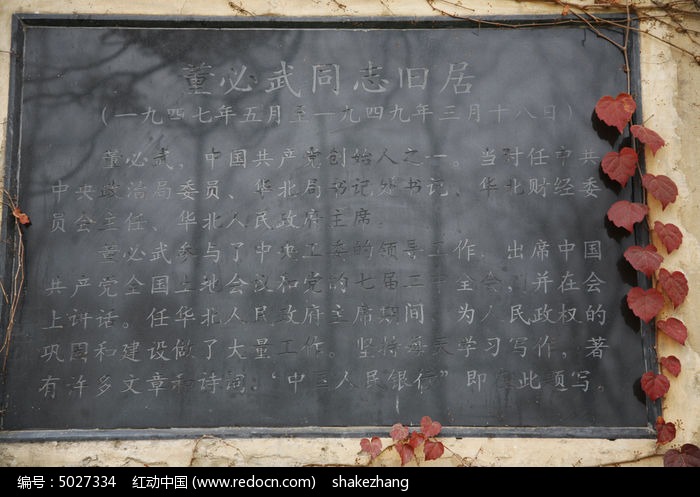 董必武同志旧居
(一九四七年五月至一九四九年三月十八日)
董必武，中国共产党创始人之一。当时任中共
中央政治局委员、华北局书记处书记、华北财经委
员会主任、华北人民政府主席.
董必武参与了中央工委的领导工作，出席中国
共产党全国土地会议和党的七届二中全会，并在会
上讲话。任华北人民政府主席期间，为人民政权的
巩固和建设做了大量工作。坚持每天学习写作，著
有许多文章和诗词，“中国人民银行”即 此题写。
编号：5027334 红动中国 (www.redocn.com) shakezhang